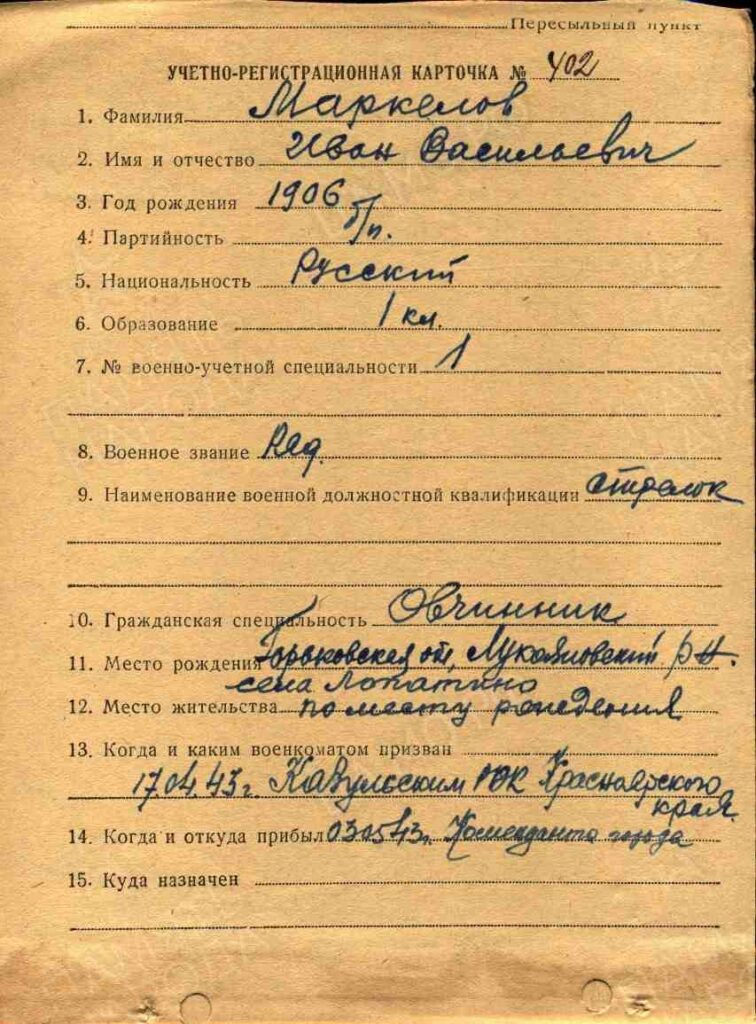 Пересыльный пункт
УЧЕТНО-РЕГИСТРАЦИОННАЯ КАРТОЧКА № 402
1. Фамилия Маркелов
2. Имя и отчество Иван Васильевич
3. Год рождения 1906
4. Партийность б/п.
5. Национальность Русский
6. Образование 1 кл.
7. № военно-учетной специальности 1
8. Военное звание Ряд.
9. Наименование военной должностной квалификации стрелок
10. Гражданская специальность Овчинник
11. Место рождения Горьковская об, Лукояновский р-н.
села Лопатино
12. Место жительства по месту рождения
13. Когда и каким военкоматом призван
17.04.43 г. РВК Красноярского
края.
14. Когда и откуда прибыл 030543 г. Коменданта города
15. Куда назначен